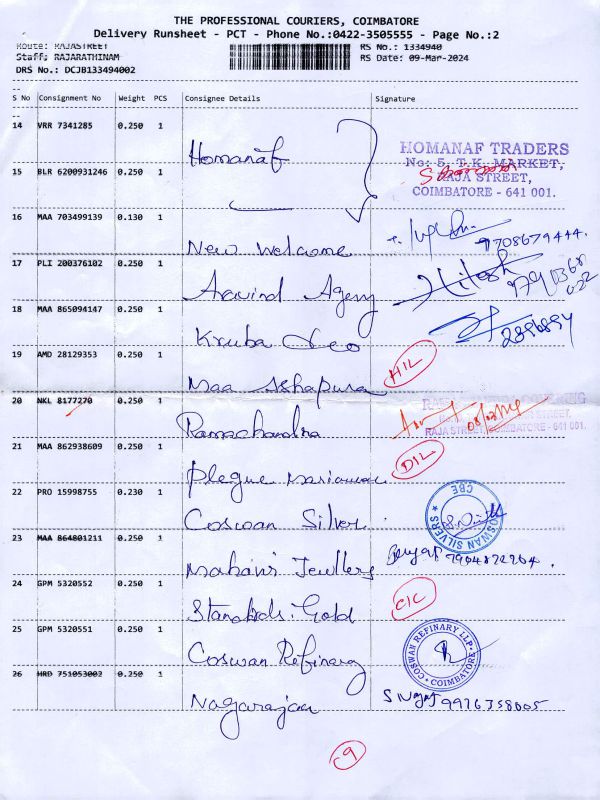 THE PROFESSIONAL COURIERS, COIMBATORE
Delivery Runsheet - PCT - Phone No.:0422-3505555 - Page No.:2
Route: RAJASTREET
RS No.: 1334940
Staff: RAJARATHINAM
RS Date: 09-Mar-2024
DRS No.: DCJB133494002
S No Consignment No Weight PCS Consignee Details Signature
14 VRR 7341285 0.250 1 Homanaf
HOMANAF TRADERS
No: 5, T.K. MARKET,
RAJA STREET,
COIMBATORE - 641 001.
15 BLR 6200931246 0.250 1
16 MAA 703499139 0.130 1 New Welcome 9708679444.
17 PLI 200376102 0.250 1 Aravind Agency Hitesh
18 MAA 865094147 0.250 1 Kruba Deo
19 AMD 28129353 0.250 1 Maa Ashapura H/L
20 NKL 8177270 0.250 1 Ramachandra
RAJA STREET, COIMBATORE - 641 001.
21 MAA 862938609 0.250 1 Plegue Mariamman D/L
22 PRO 15998755 0.230 1 Coswan Silver
COSWAN SILVERS CBE
23 MAA 864801211 0.250 1 Mahavir Jewllery 7904872264.
24 GPM 5320552 0.250 1 Standrds. Gold C/C
25 GPM 5320551 0.250 1 Coswan Refinary
COSWAN REFINARY LLP. COIMBATORE
26 HRD 751053002 0.250 1 Nagarajan S Nagaj 9976358005
9